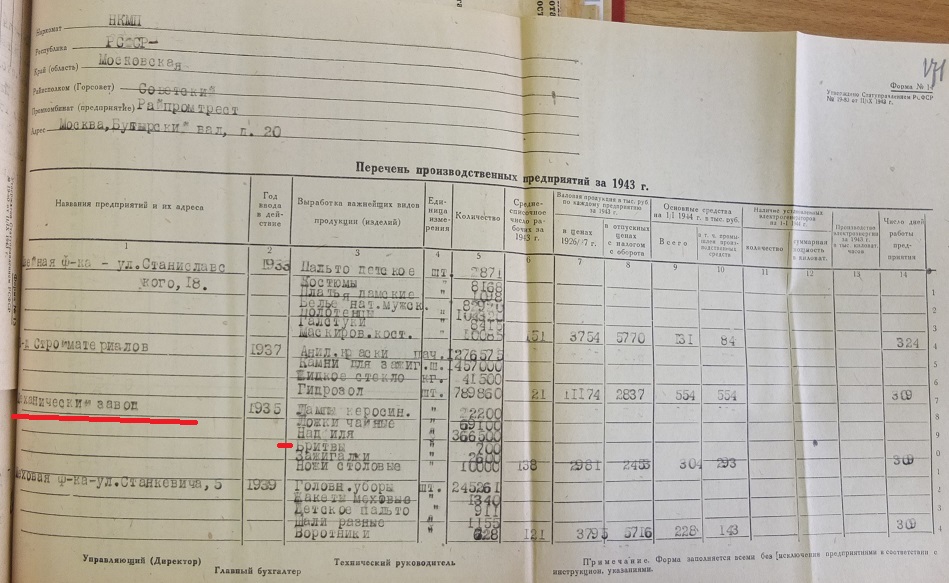 Наркомат НКМП
Республика РСФСР
Край (область) Московская
Райисполком (Горсовет) Советский
Промкомбинат (предприятие) Райпромтрест
Адрес Москва, Бутырский вал, д. 20
Форма № 1
Утверждено Статуправлением РСФСР
Перечень производственных предприятий за 1943 г.
Названия предприятий и их адреса
Год ввода в дей-ствие
Выработка важнейших видов продукции (изделий)
Еди-ница изме-рения
Количество
Средне-списочное число ра-бочих за 1943 г.
Валовая продукция в тыс. руб. по каждому предприятию за 1943 г.
в ценах 1926/7 г.
в отпускных ценах с налогом с оборота
Основные средства на 1/I 1944 г. в тыс. руб.
Всего
в т. ч. промышлен. произ-водствен. средств
Наличие установленных электромоторов
количество
суммарная мощность в киловат.
Производство электроэнергии за 1943 г. в тыс. киловат. часов
Число дней работы пред-приятия
1 2 3 4 5 6 7 8 9 10 11 12 13 14
ейная ф-ка - ул.Станиславс 1933 Пальто детское шт. 2871
кого,18. Костюмы " 8168
Платья дамские "
Белье нат.мужск. "
Полотенцы "
Галстуки "
Маскиров.кост. " 10085 151 3754 5770 131 84 324
Стройматериалов 1937 Анил.краски пач. 1276575
Камни для зажиг. ш. 1457000
Жидкое стекло кг. 41500
Гидрозол шт. 789860 21 11174 2837 554 554 309
еханический завод 1935 Лампы керосин. " 22200
Ложки чайные " 69100
Надфиля " 366500
Бритвы " 700
Зажигалки " 2600
Ножи столовые " 10000 138 2981 2453 304 293 309
еховая ф-ка-ул.Станкевича,5 1939 Головн.уборы шт. 245261
Жакеты меховые " 1340
Детское пальто " 911
Шали разные " 1155
Воротники " 628 121 3795 5716 228 143 309
Управляющий (Директор)
Главный бухгалтер
Технический руководитель
Примечание. Форма заполняется всеми без исключения предприятиями в соответствии с
инструкцион. указаниями.